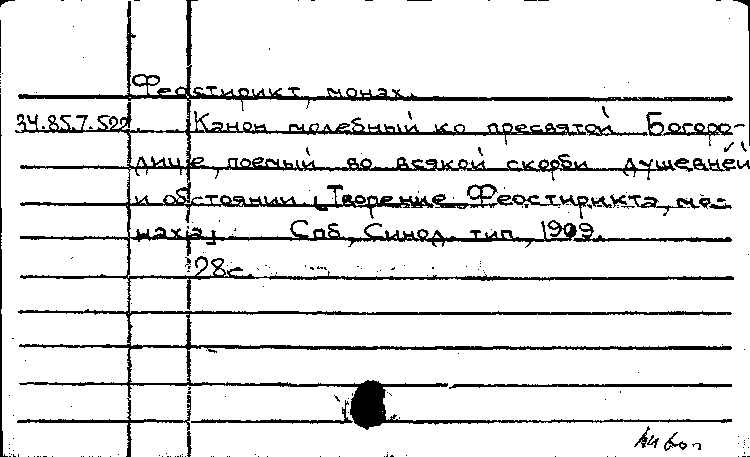 Феостирикт, монах.
34.85.7.522. Канон молебный ко пресвятой Богоро-
дице, поемый во всякой скорби душевней
и обстоянии [Творение Феостирикта, мо-
наха]. Спб, Синод. тип, 1909.
28с.